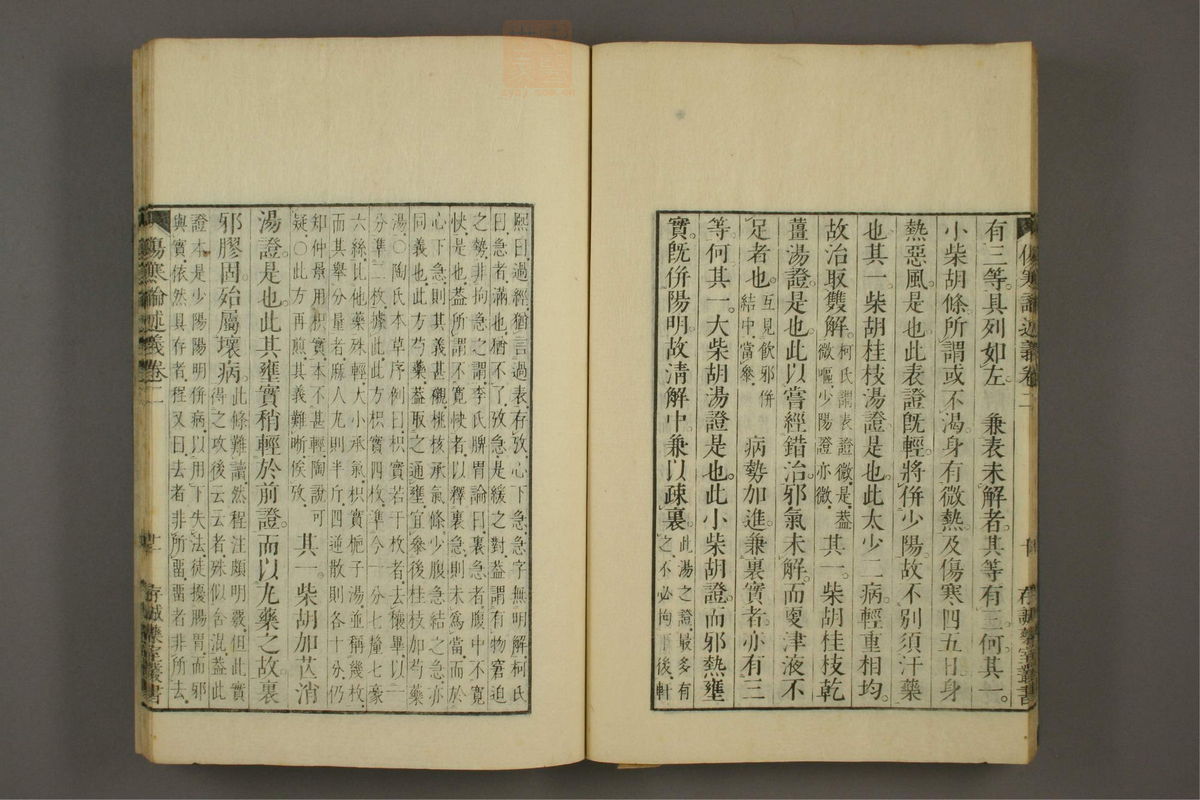 有三等。具列如左　兼表未解者。其等有三。何。其一。
小柴胡條。所謂或不渴。身有微熱。及傷寒四五日。身
熱惡風。是也。此表證既輕。將併少陽。故不別須汗藥
也。其一。柴胡桂枝湯證。是也。此太少二病。輕重相均。
故治取雙解。柯氏謂表證微。是。蓋微嘔。少陽證亦微。其一。柴胡桂枝乾
薑湯證。是也。此以嘗經錯治。邪氣未解。而更津液不
足者也。互見飲邪併結中。當參。　病勢加進。兼裏實者。亦有三
等。何。其一。大柴胡湯證。是也。此小柴胡證。而邪熱壅
實。既併陽明。故清解中。兼以疎裏。此湯之證。最多有之。不必拘下後。軒
傷寒論述義卷二　十　存誠藥室叢書
熙曰。過經猶言過表存攷。心下急。急字無明解。柯氏
曰。急者滿也。猶不了。攷急是緩之對。蓋謂有物窘迫
之勢。非拘急之謂。李氏脾胃論曰。裏急者腹中不寬
快是也。蓋所謂不寬快者。以釋裏急。則未爲當。而於
心下急。則其義甚襯。桃核承氣條。少腹急結之急。亦
同義也。此方芍藥。蓋取之通壅。宜參後桂枝加芍藥
湯。○陶氏本草序例曰。枳實若干枚者。去穰畢。以一
分準二枚。據此。此方枳實四枚。準今一分七釐七豪
六絲。比他藥殊輕。大小承氣。枳實梔子湯。並稱幾枚。
而其舉分量者。麻人丸則半斤。四逆散則各十分。仍
知仲景用枳實。本不甚輕。陶說可
疑。○此方再煎。其義難晰。俟攷。其一。柴胡加芒消
湯證。是也。此其壅實稍輕於前證。而以丸藥之故。裏
邪膠固。殆屬壞病。此條難讀。然程注頗明覈。但此實得之攻後云云者。殊似含混。蓋此
證本是少陽陽明併病。以用下失法。徒擾腸胃。而邪
與實依然具存者。程又曰。去者非所留。留者非所去。
傷寒論述義卷二　十一　存誠藥室叢書